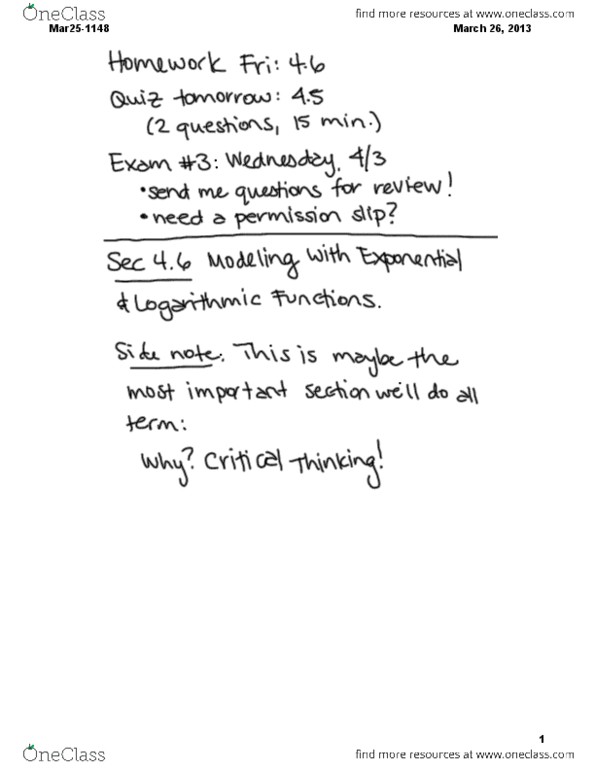 OneClass
find more resources at www.oneclass.com
Mar25-1148
March 26, 2013
Homework Fri: 4.6
Quiz tomorrow: 4.5
(2 questions, 15 min.)
Exam #3: Wednesday, 4/3
•send me questions for review!
•need a permission slip?
Sec 4.6 Modeling with Exponential
& Logarithmic Functions.
Side note: This is maybe the
most important section we'll do all
term:
Why? Critical Thinking!
1
OneClass
find more resources at www.oneclass.com